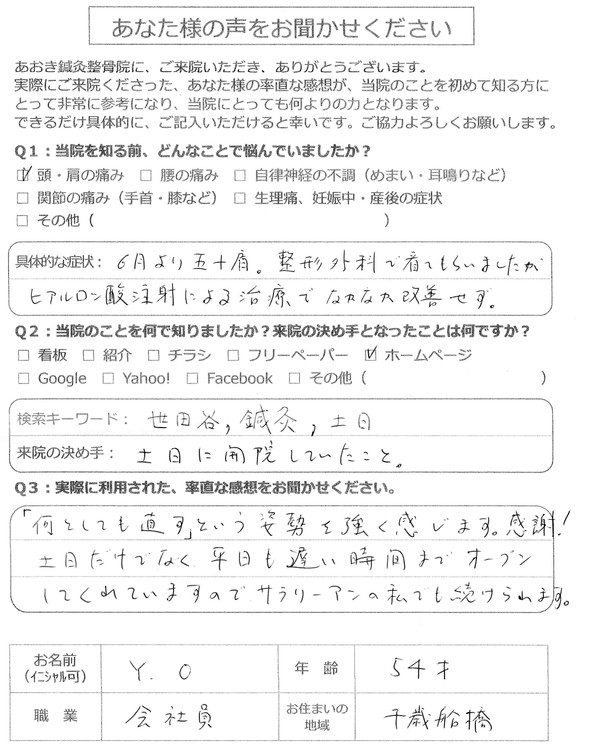 あなた様の声をお聞かせください
あおき鍼灸整骨院に、ご来院いただき、ありがとうございます。
実際にご来院くださった、あなた様の率直な感想が、当院のことを初めて知る方に
とって非常に参考になり、当院にとっても何よりの力となります。
できるだけ具体的に、ご記入いただけると幸いです。ご協力よろしくお願いします。
Q1：当院を知る前、どんなことで悩んでいましたか？
☑ 頭・肩の痛み □ 腰の痛み □ 自律神経の不調（めまい・耳鳴りなど）
□ 関節の痛み（手首・膝など） □ 生理痛、妊娠中・産後の症状
□ その他（ ）
具体的な症状： 6月より五十肩。整形外科で着てもらいましたが
ヒアルロン酸注射による治療でなかなか改善せず。
Q2：当院のことを何で知りましたか？来院の決め手となったことは何ですか？
□ 看板 □ 紹介 □ チラシ □ フリーペーパー ☑ ホームページ
□ Google □ Yahoo! □ Facebook □ その他（ ）
検索キーワード： 世田谷, 鍼灸, 土日
来院の決め手： 土日に開院していたこと。
Q3：実際に利用された、率直な感想をお聞かせください。
「何としても直す」という姿勢を強く感じます。感謝!
土日だけでなく、平日も遅い時間までオープン
してくれていますのでサラリーアンの私でも続けられます。
お名前 Y. O 年 齢 54才
（イニシャル可）
職 業 会社員 お住まいの 千歳船橋
地域